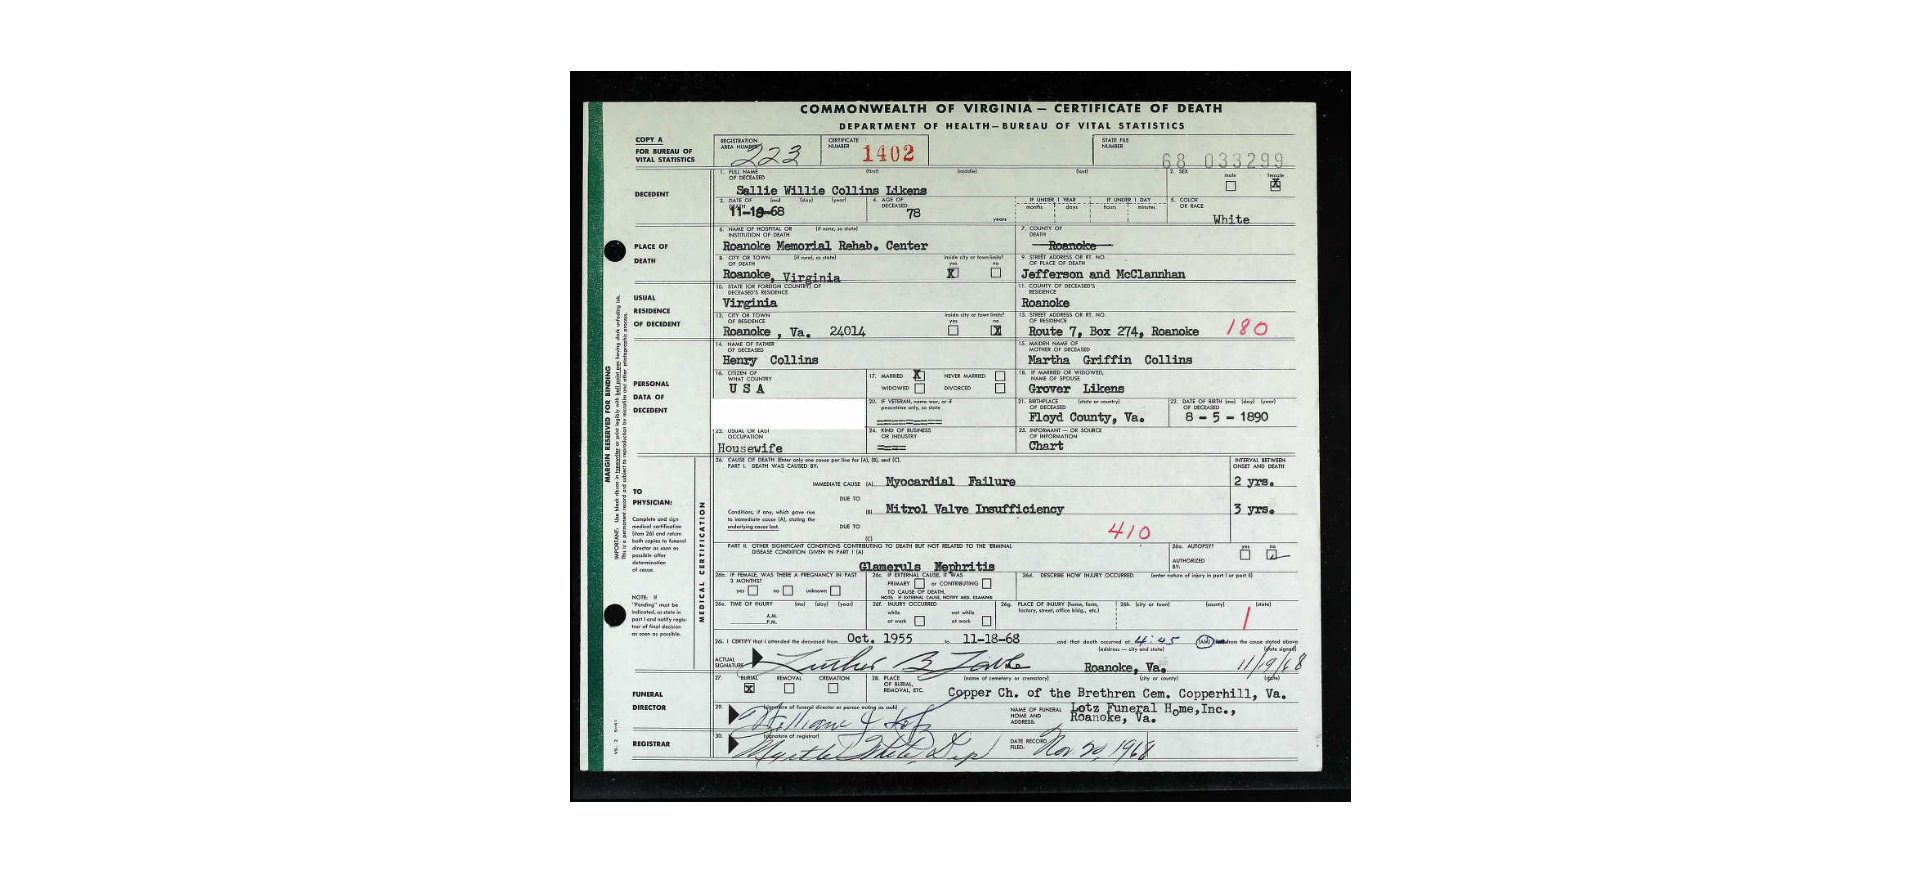 COMMONWEALTH OF VIRGINIA — CERTIFICATE OF DEATH
DEPARTMENT OF HEALTH—BUREAU OF VITAL STATISTICS
COPY A
FOR BUREAU OF
VITAL STATISTICS
REGISTRATION
AREA NUMBER
223
CERTIFICATE
NUMBER
1402
STATE FILE
NUMBER
68 033299
DECEDENT
1. FULL NAME
OF DECEASED
(first) (middle) (last)
Sallie Willie Collins Likens
2. SEX
male female
X
3. DATE OF (mo) (day) (year)
DEATH
11-18-68
4. AGE OF
DECEASED
78
years
IF UNDER 1 YEAR
months days
IF UNDER 1 DAY
hours minutes
5. COLOR
OR RACE
White
PLACE OF
DEATH
6. NAME OF HOSPITAL OR (if none, so state)
INSTITUTION OF DEATH
Roanoke Memorial Rehab. Center
7. COUNTY OF
DEATH
Roanoke
8. CITY OR TOWN (if rural, so state)
OF DEATH
Roanoke, Virginia
inside city or town limits?
yes no
X
9. STREET ADDRESS OR RT. NO.
OF PLACE OF DEATH
Jefferson and McClannhan
USUAL
RESIDENCE
OF DECEDENT
10. STATE (OR FOREIGN COUNTRY) OF
DECEASED'S RESIDENCE
Virginia
11. COUNTY OF DECEASED'S
RESIDENCE
Roanoke
12. CITY OR TOWN
OF RESIDENCE
Roanoke , Va. 24014
inside city or town limits?
yes no
X
13. STREET ADDRESS OR RT. NO.
OF RESIDENCE
Route 7, Box 274, Roanoke
180
PERSONAL
DATA OF
DECEDENT
14. NAME OF FATHER
OF DECEASED
Henry Collins
15. MAIDEN NAME OF
MOTHER OF DECEASED
Martha Griffin Collins
16. CITIZEN OF
WHAT COUNTRY
U S A
17. MARRIED X NEVER MARRIED
WIDOWED DIVORCED
18. IF MARRIED OR WIDOWED,
NAME OF SPOUSE
Grover Likens
20. IF VETERAN, name war, or if
peacetime only, so state
=========
21. BIRTHPLACE (state or country)
OF DECEASED
Floyd County, Va.
22. DATE OF BIRTH (mo) (day) (year)
OF DECEASED
8 - 5 - 1890
23. USUAL OR LAST
OCCUPATION
Housewife
24. KIND OF BUSINESS
OR INDUSTRY
====
25. INFORMANT — OR SOURCE
OF INFORMATION
Chart
MARGIN RESERVED FOR BINDING
TO
PHYSICIAN:
Complete and sign
medical certification
(item 26) and return
both copies to funeral
director as soon as
possible after
determination
of cause.
NOTE: IF
"Pending" must be
indicated, so state in
part I and notify regis-
trar of final decision
as soon as possible.
MEDICAL CERTIFICATION
26. CAUSE OF DEATH (Enter only one cause per line for (A), (B), and (C).
PART I. DEATH WAS CAUSED BY:
INTERVAL BETWEEN
ONSET AND DEATH
IMMEDIATE CAUSE (A) Myocardial Failure
2 yrs.
DUE TO
Conditions, if any, which gave rise
to immediate cause (A), stating the
underlying cause last.
(B) Mitrol Valve Insufficiency
3 yrs.
DUE TO
(C)
410
PART II. OTHER SIGNIFICANT CONDITIONS CONTRIBUTING TO DEATH BUT NOT RELATED TO THE TERMINAL
DISEASE CONDITION GIVEN IN PART I (A)
Glameruls Nephritis
26a. AUTOPSY? yes no
AUTHORIZED
BY:
26b. IF FEMALE, WAS THERE A PREGNANCY IN PAST
3 MONTHS?
yes no unknown
26c. IF EXTERNAL CAUSE, IT WAS
PRIMARY or CONTRIBUTING
TO CAUSE OF DEATH.
NOTE: IF EXTERNAL CAUSE, NOTIFY MED. EXAMINER
26d. DESCRIBE HOW INJURY OCCURRED. (enter nature of injury in part I or part II)
26e. TIME OF INJURY (mo) (day) (year)
A.M.
P.M.
26f. INJURY OCCURRED
while not while
at work at work
26g. PLACE OF INJURY (home, farm,
factory, street, office bldg., etc.)
26h. (city or town) (county) (state)
1
26i. I CERTIFY that I attended the deceased from Oct. 1955 to 11-18-68 and that death occurred at 4:45 (AM) from the cause stated above
(address — city and state) (date signed)
ACTUAL
SIGNATURE
Roanoke, Va.
11/19/68
FUNERAL
DIRECTOR
27. BURIAL REMOVAL CREMATION
X
28. PLACE
OF BURIAL,
REMOVAL, ETC.
(name of cemetery or crematory) (city or county) (state)
Copper Ch. of the Brethren Cem. Copperhill, Va.
29. (signature of funeral director or person acting as such)
NAME OF FUNERAL
HOME AND
ADDRESS:
Lotz Funeral Home,Inc.,
Roanoke, Va.
REGISTRAR
30. (signature of registrar)
DATE RECORD
FILED:
Nov. 20, 1968